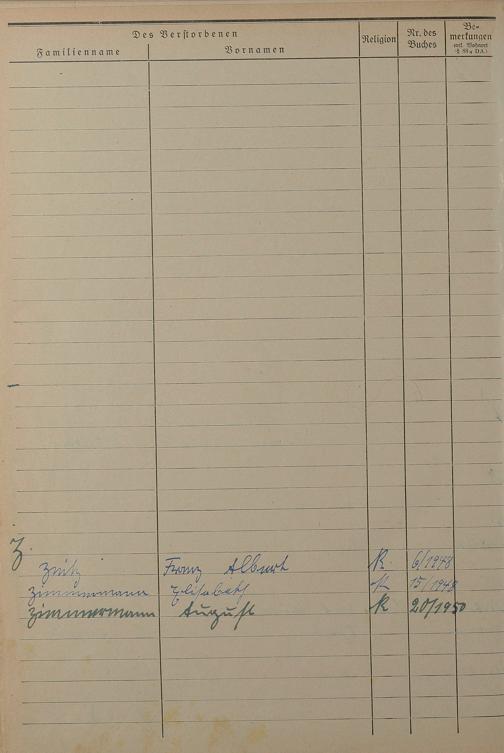 Des Verstorbenen
Familienname Vornamen Religion Nr. des Buches Bemerkungen
Z.
Franz Albert K. 6/1948
Zimmermann Elisabeth K 15/1948
Zimmermann August K 20/1950